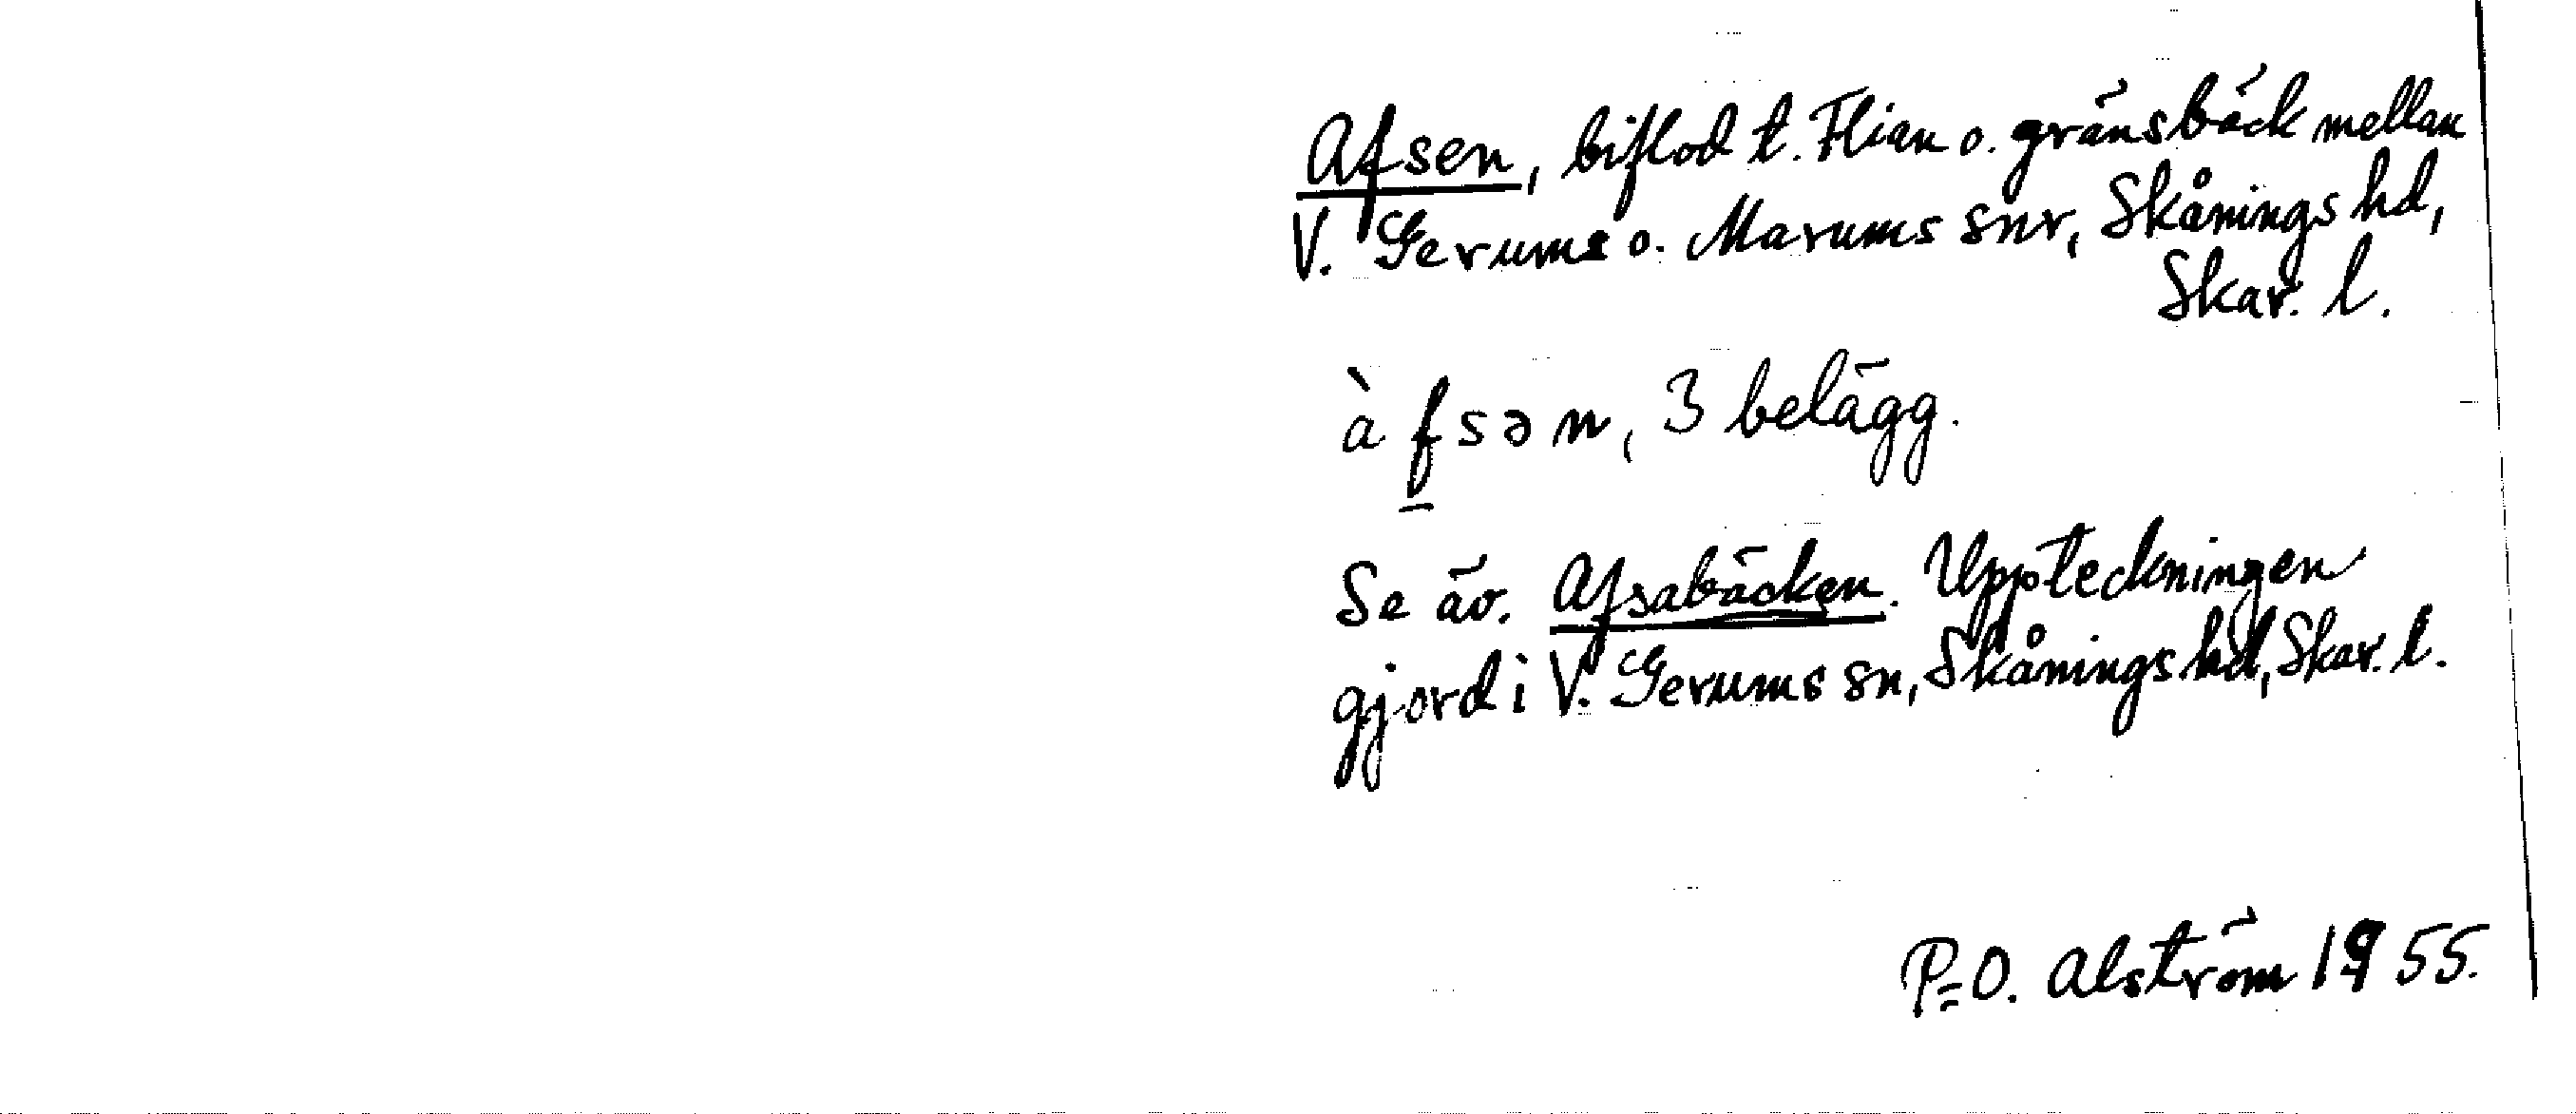 Afsen, biflod t. Flian o. gränsbäck mellan
V. Gerums o. Marums snr, Skånings hd,
Skar. l.
à f̲ s ə n, 3 belägg.
Se äv. Afsabäcken. Uppteckningen
gjord i V. Gerums sn, Skånings hd, Skar. l.
P=O. Alström 1955.